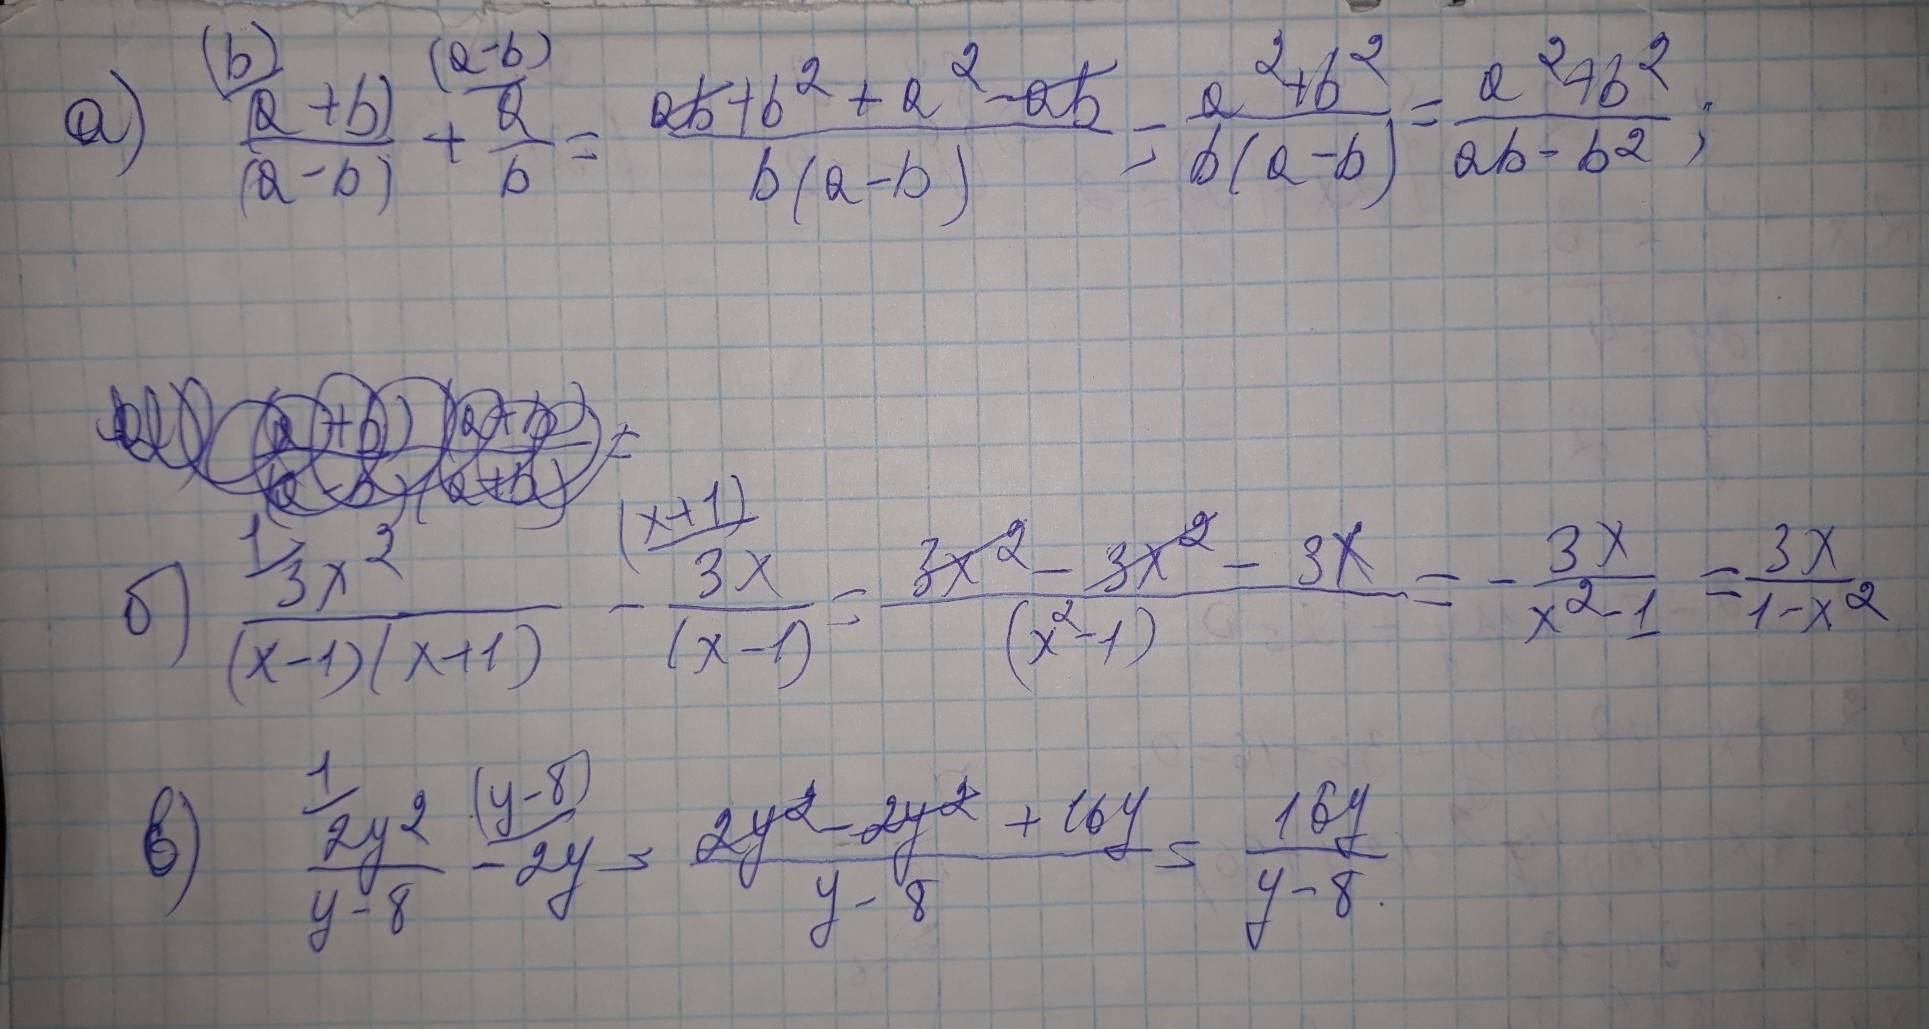 а) (b)/(a+b)/(a-b) + (a-b)/a/b = ab+b²+a²-ab/b(a-b) = a²+b²/b(a-b) = a²+b²/ab-b² ;
(a+b) (a+b)/(a-b)(a+b) =
б) 1/3x²/(x-1)(x+1) - (x+1)/3x/(x-1) = 3x²-3x²-3x/(x²-1) = -3x/x²-1 = 3x/1-x²
в) 1/2y²/y-8 - (y-8)/2y = 2y²-2y²+16y/y-8 = 16y/y-8.